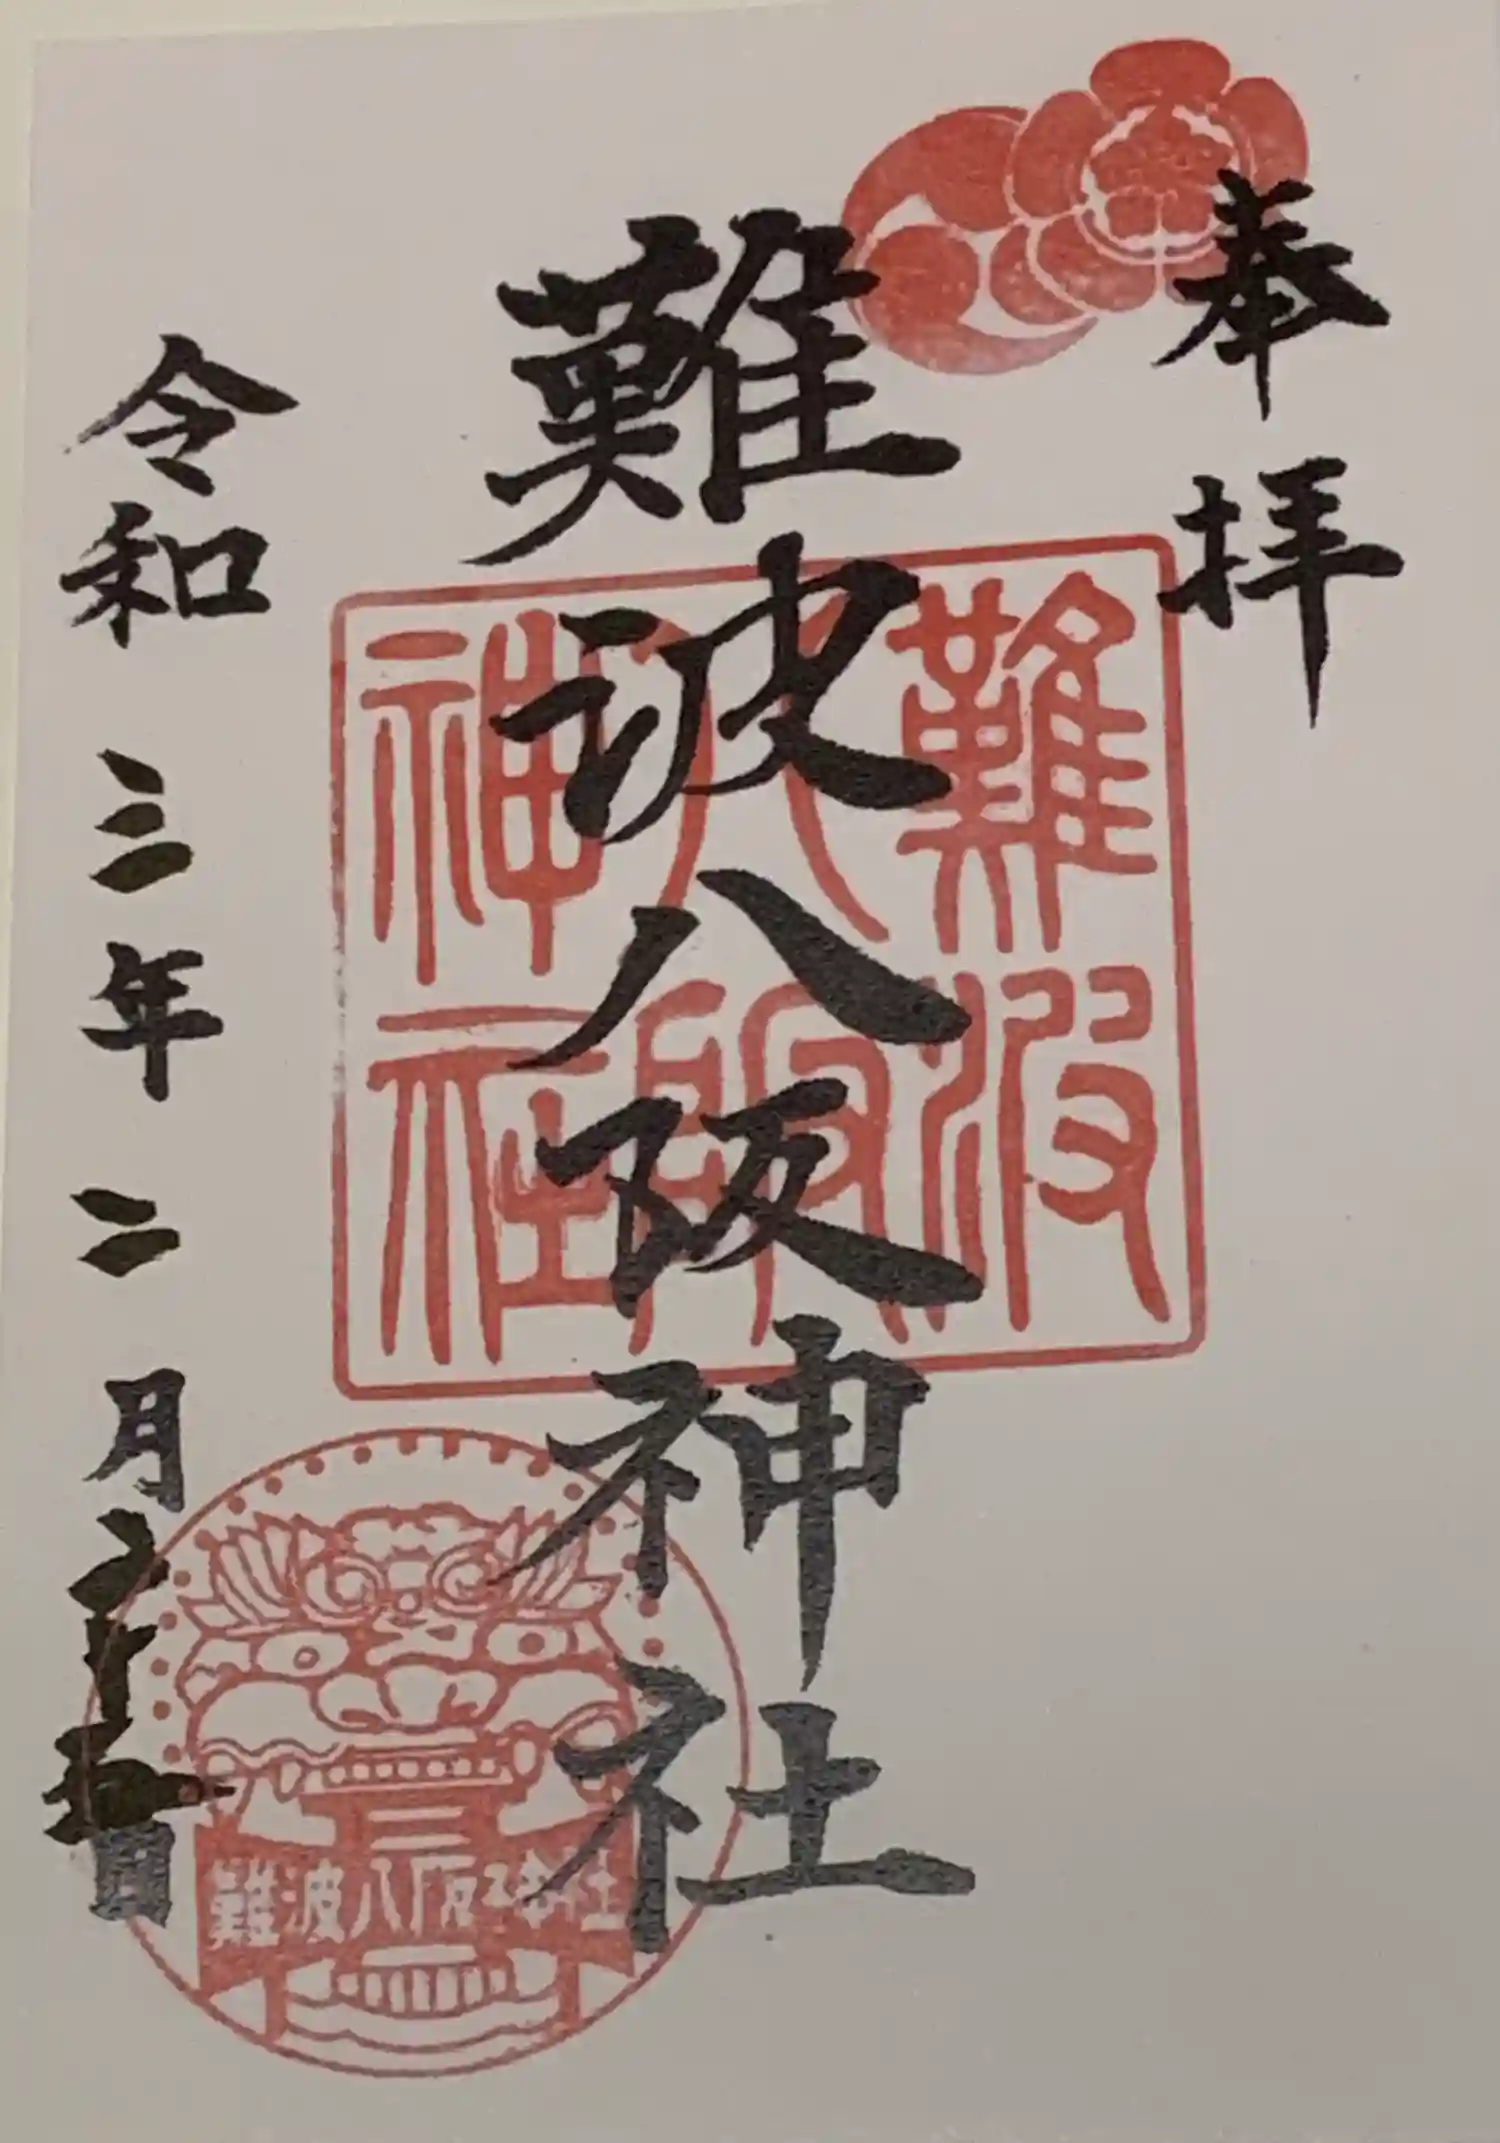 奉拝
難波八阪神社
令和三年二月二十五日
難波
八阪
神社
難波八阪神社